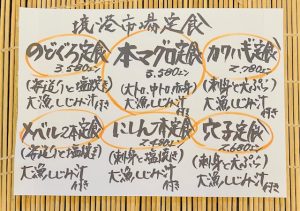 境港市場定食
のどぐろ定食
3,580エン
(宍道りと塩焼き)
大漁しじみ汁付き
本マグロ定食
5,580エン
(大トロ、中トロ、赤身)
大漁しじみ汁付き
カワハギ定食
2,780エン
(刺身と天ぷら)
大漁しじみ汁付き
メバル2本定食
(塩焼き)
大漁しじみ汁付き
にしん2本定食
(刺身と塩焼き)
大漁しじみ汁付き
穴子定食
2,680エン
(刺身と天ぷら)
大漁しじみ汁付き